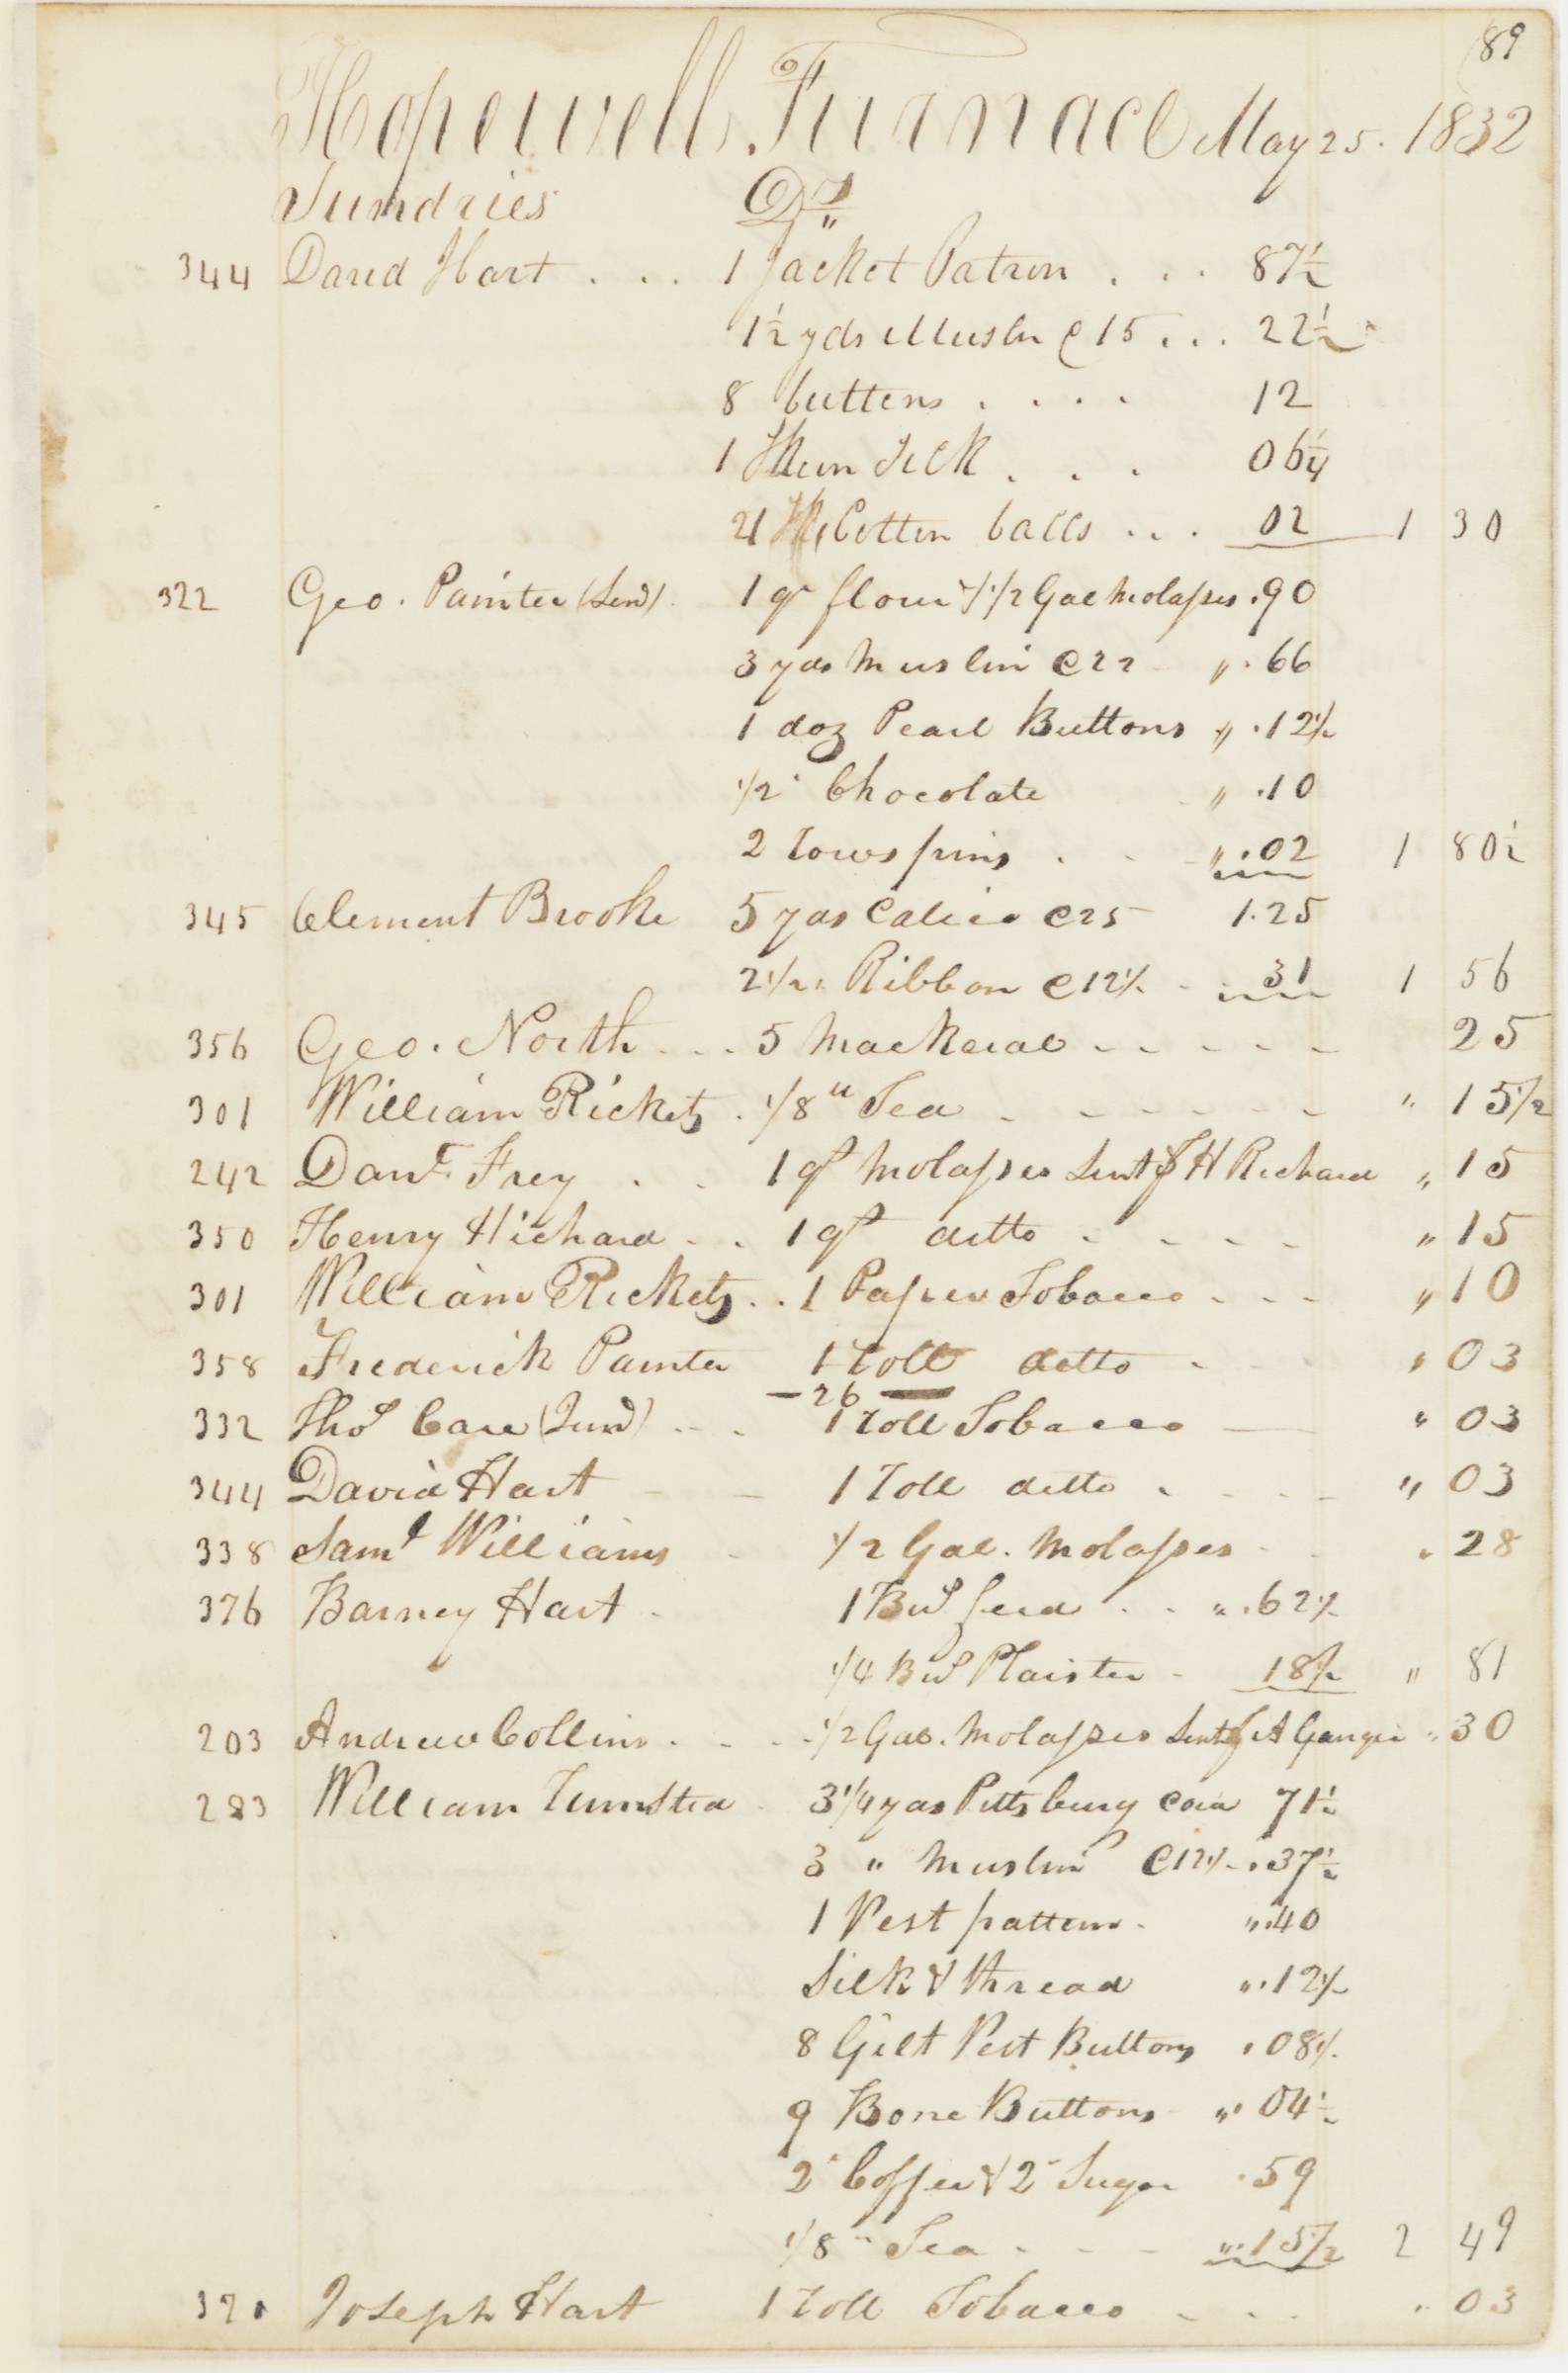 89
Hopewell Furnace May 25. 1832
Sundries Drs
344 David Hart . . . 1 Jacket Patron . . . 87½
1½ yds Muslin @ 15 . . . 22½
8 buttens . . . . 12
1 Skein Silk . . . 06¼
2 Cotten balls . . . 02 1 30
322 Geo. Painter (Senr) 1 qr flour & 1/2 Gal Molasses .90
3 yds Muslin @ 22 " .66
1 doz Pearl Buttons " .12½
1/2 " Chocolate " .10
2 Tows pins . - " .02 1 80½
345 Clement Brooke 5 yds Calico @ 25 - 1.25
2½ " Ribbon @ 12½ - .31 1 56
356 Geo. North - - - 5 Mackeral - - - - - 25
301 William Rickets . 1/8 " Tea - - - - - - " 15½
242 Danl. Frey . . 1 qt Molasses Sent H Richard " 15
350 Henry Hichard - . 1 qt ditto - - - - " 15
301 William Rickets . . 1 Paper Tobacco - - - " 10
358 Frederick Painter 1 roll ditto - " 03
- 26 -
332 Thos Care (Junr) - - . 1 roll Tobacco - " 03
344 David Hart - - 1 roll ditto . - - - " 03
338 Saml Williams - 1/2 Gal. Molasses - " 28
376 Barney Hart - 1 Bus feed . . " .62½
1/4 Bus Plaister - 18½ " 81
203 Andrew Collins . - - . 1/2 Gal. Molasses Sent A Gauger " 30
283 William Tumsted 3¼ yds Pittsburg Cord 71½
3 " Muslin @ 12½ - .37½
1 Vest pattern - " .40
Silk & thread " .12½
8 Gilt Vest Buttons " .08½
9 Bone Buttons - " 04½
2 " Coffee & 2 " Sugar .59
1/8 " Tea - - - " .15½ 2 49
Joseph Hart 1 roll Tobacco - - - " 03